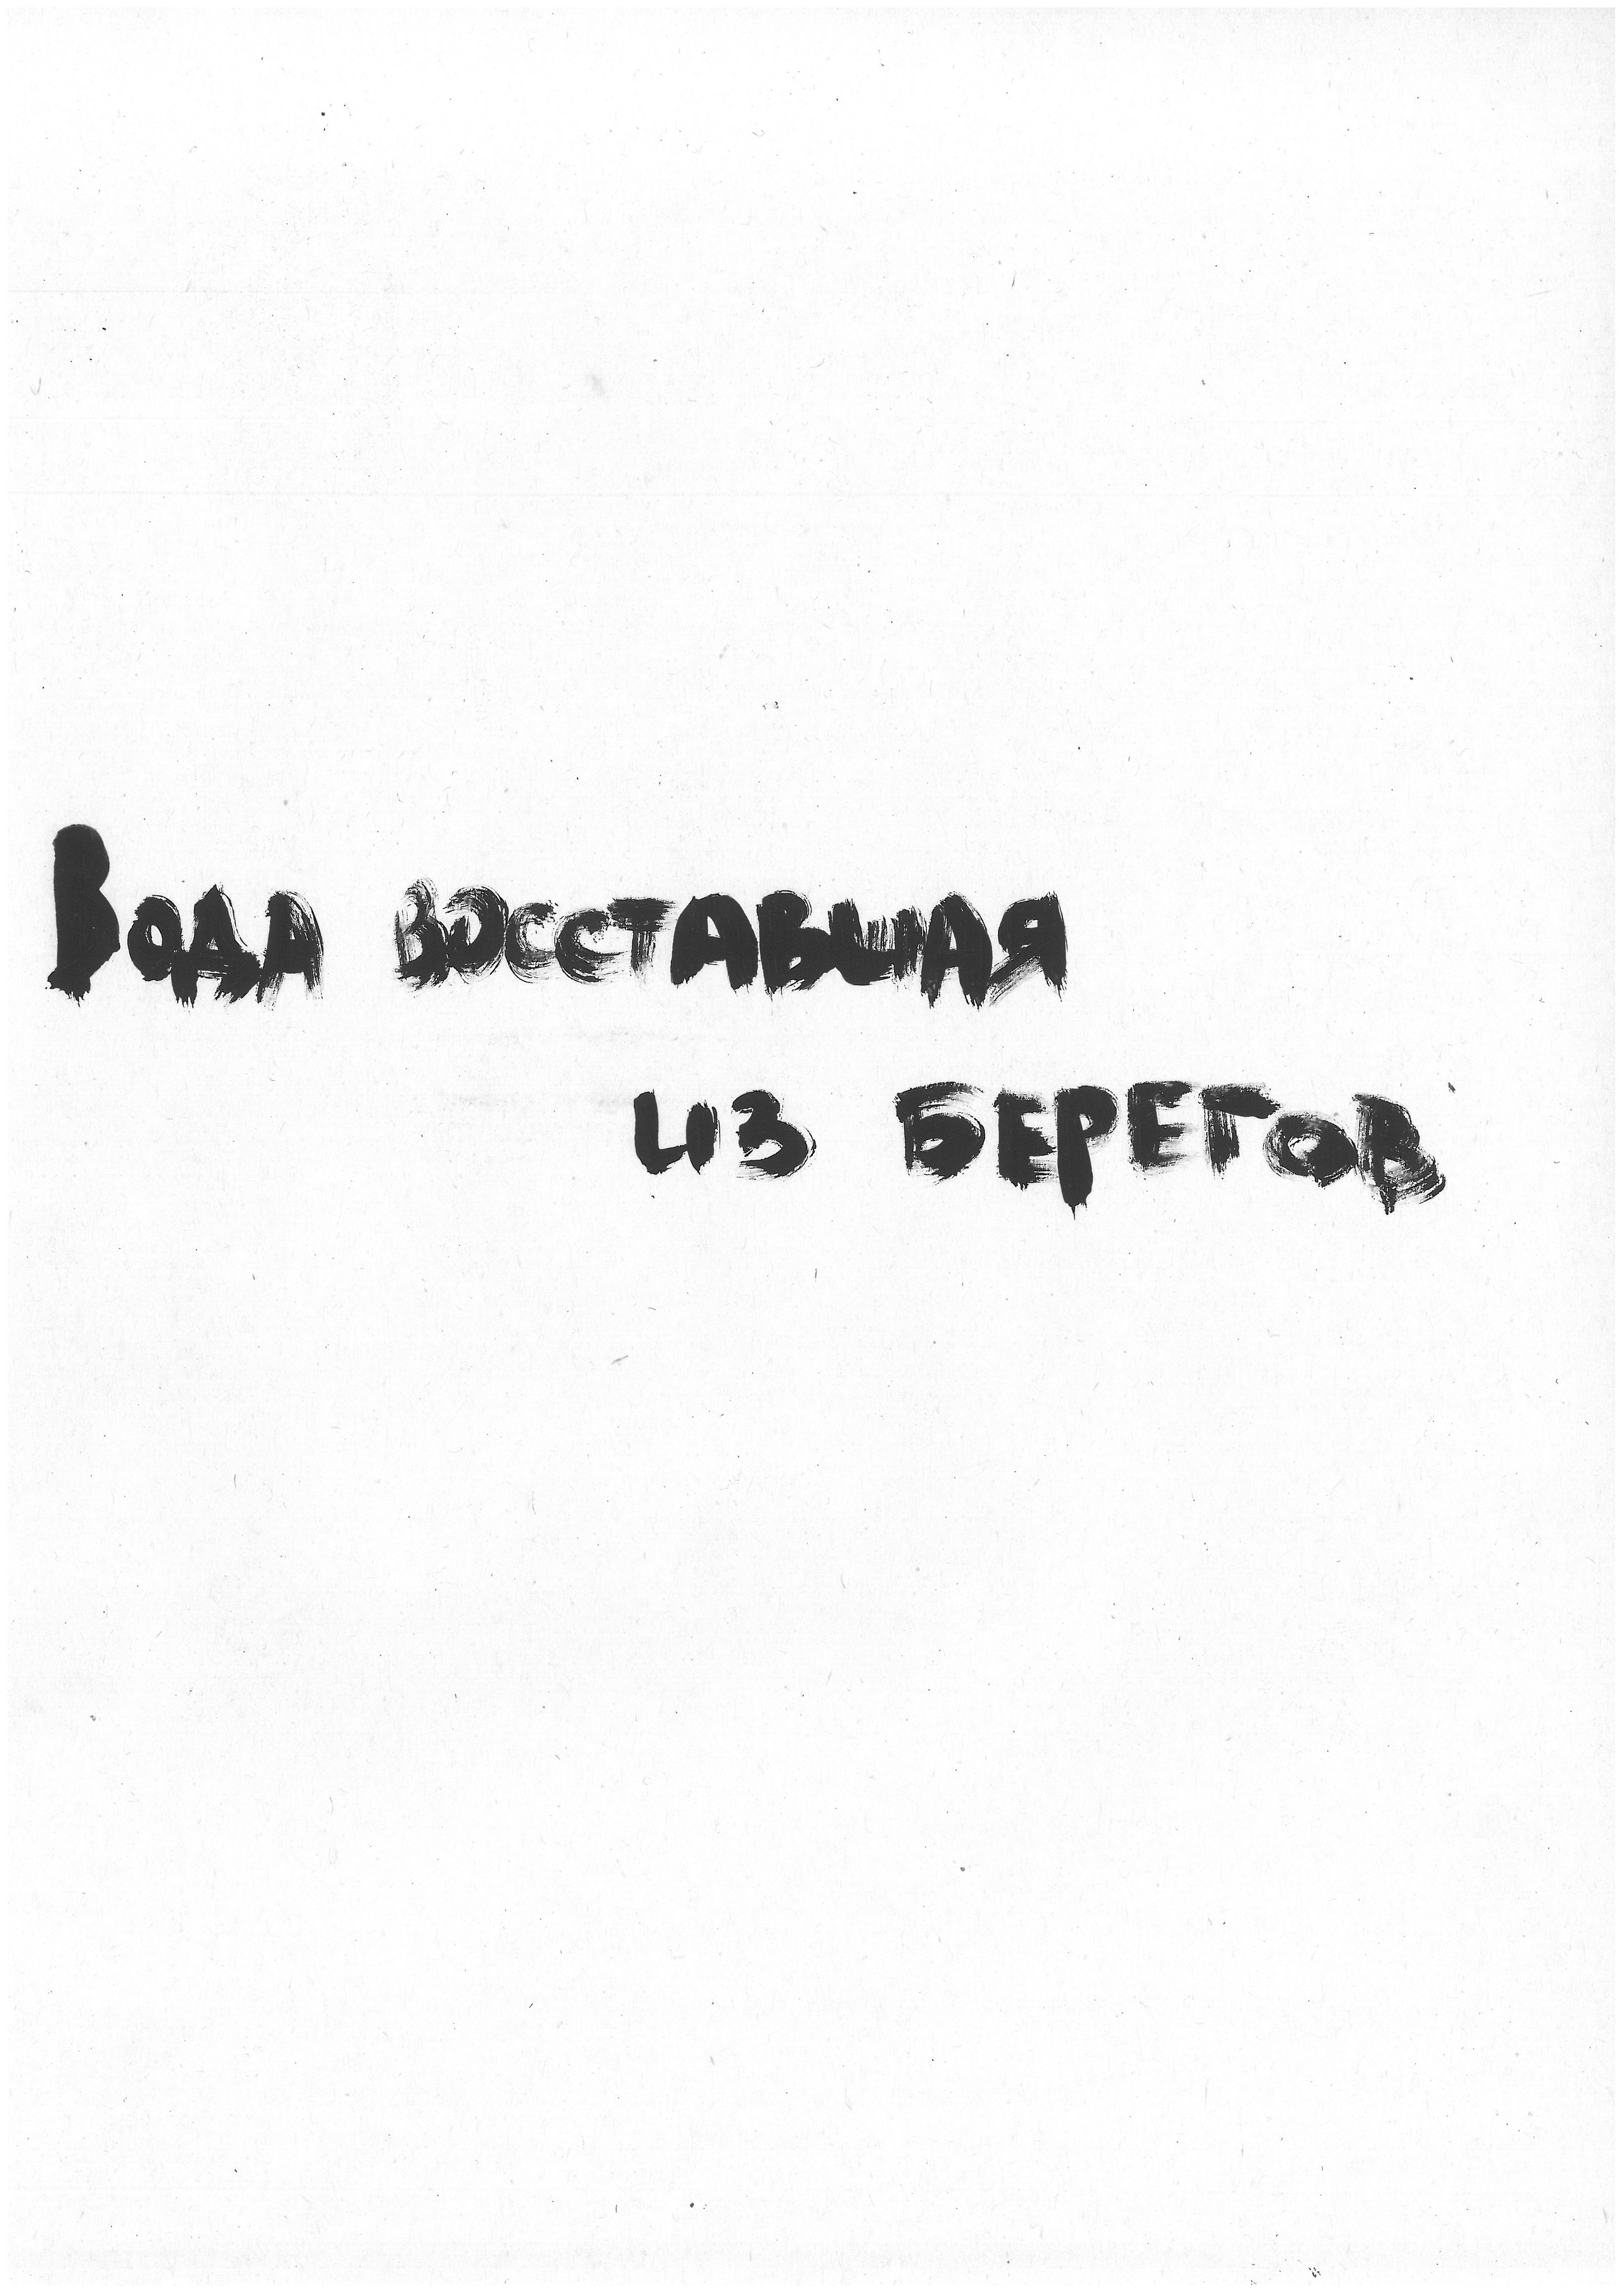 Вода восставшая
из берегов